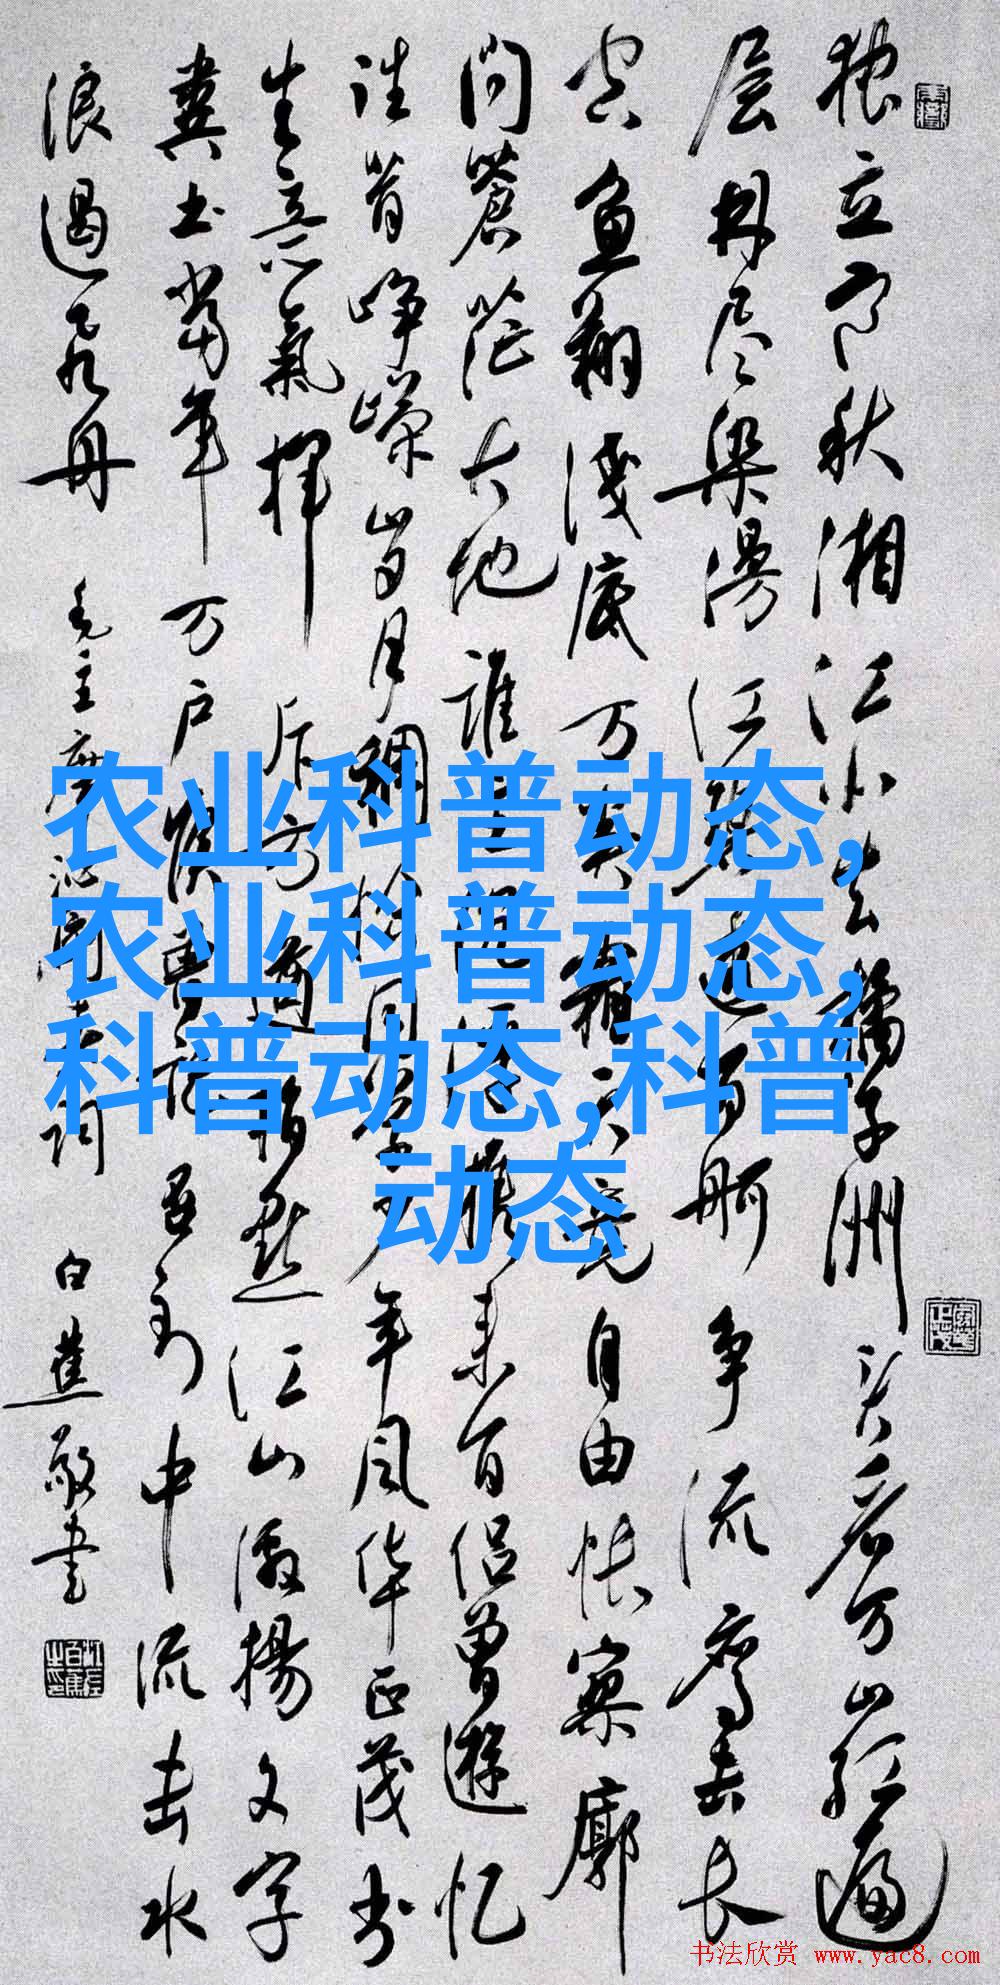 独立寒秋湘江北去橘子洲头看万山红遍
层林尽染漫江碧透百舸争流鹰击长
空鱼翔浅底万类霜天竞自由怅寥廓
问蒼茫大地誰主沉浮携来百侣曾遊忆
往昔峥嵘岁月稠恰同学少年风华正茂书
生意氣挥斥方遒指点江山激揚文字
粪土当年万户侯曾记否到中流击水
浪遏飞舟 毛主席沁园春词 白蕉敬书
农业科普动态,
农业科普动态,
科普动态,科普
动态
书法欣赏 www.yac8.com